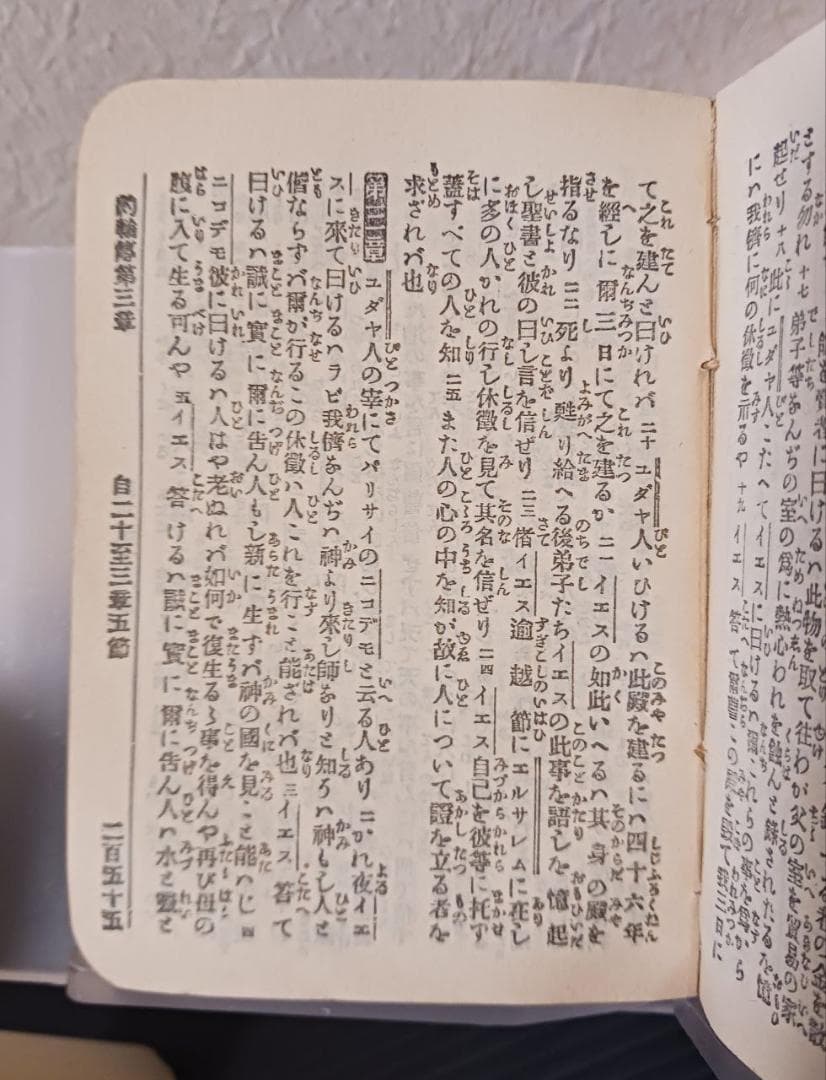 さする勿れ 十七 弟子等なんぢの室の爲に熱心われを蝕んと錄されたるを憶
起せり 十八 此にユダヤ人こたへてイエスに曰けるハ爾これらの事を爲から
にハ我儕に何の休徴を示るや 十九 イエス答て
て之を建んと曰けれバ 二十 ユダヤ人いひけるハ此殿を建るにハ四十六年
を經しに爾三日にて之を建るか 二一 イエスの如此いへるハ其身の殿を
指るなり 二二 死より甦り給へる後弟子たちイエスの此事を語しを憶起
し聖書と彼の曰し言を信ぜり 二三 偖イエス逾越節にエルサレムに在し
に多の人かれの行し休徴を見て其名を信ぜり 二四 イエス自己を彼等に托ず
蓋すべての人を知 二五 また人の心の中を知が故に人について證を立る者を
求されバ也
第三章 ユダヤ人の宰にてパリサイのニコデモと云る人あり 二 かれ夜イエ
スに來て曰けるハラビ我儕なんぢハ神より來し師なりと知らハ神もし人と
偕ならずバ爾が行るこの休徴ハ人これを行こと能されバ也 三 イエス答て
曰けるハ誠に實に爾に吿ん人もし新に生ずバ神の國を見こと能ハじ 四
ニコデモ彼に曰けるハ人はや老ぬれバ如何で復生るヽ事を得んや再び母の
腹に入て生る可んや 五 イエス答けるハ誠に實に爾に吿ん人ハ水と靈と
約翰傳第三章 自二十至三章五節 二百五十五